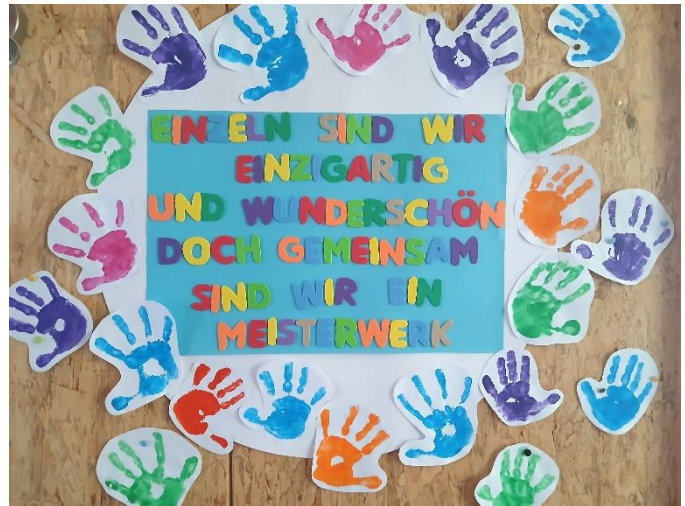 EINZELN SIND WIR
EINZIGARTIG
UND WUNDERSCHÖN
DOCH GEMEINSAM
SIND WIR EIN
MEISTERWERK